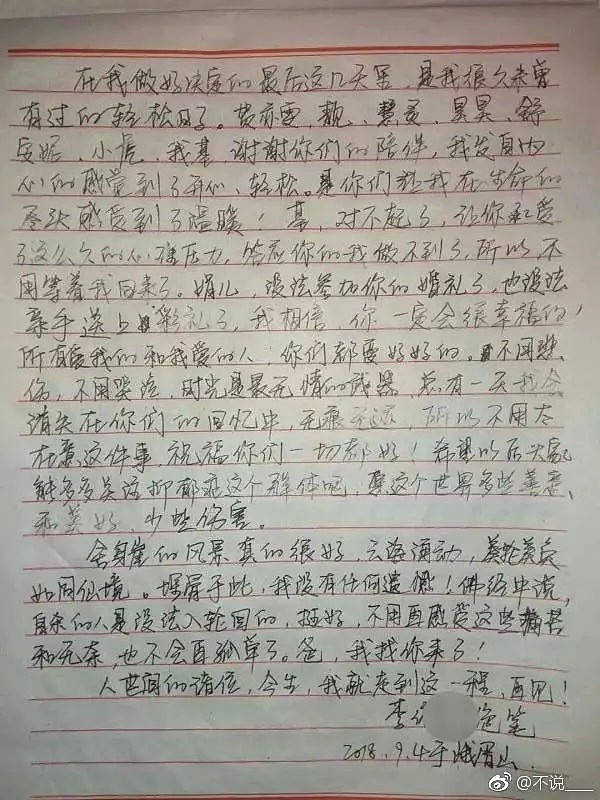 在我做好决定的最后这几天里,是我很久未曾
有过的轻松日子。黄亦雯,靓,慧灵,昊昊,舒
安妮,小虎,我基,谢谢你们的陪伴,我发自内
心的感觉到了开心、轻松。是你们让我在生命的
尽头感受到了温暖!基,对不起了,让你承受
了这么久的心理压力,答应你的我做不到了,所以,不
用等着我回来了。娟儿,没法参加你的婚礼了,也没法
亲手送上彩礼了,我相信,你一定会很幸福的!
所有爱我的和我爱的人,你们都要好好的。不用悲
伤,不用哭泣,时光是最无情的武器,总有一天我会
消失在你们的回忆中,无痕无迹,所以不用太
在意这件事,祝福你们一切都好!希望以后大家
能多多关注抑郁症这个群体吧,愿这个世界多些善意、
和美好,少些伤害。
舍身崖的风景真的很好,云海涌动,美轮美奂
如同仙境。埋骨于此,我没有任何遗憾!佛经中说,
自杀的人是没法入轮回的,挺好,不用再感受这些痛苦
和无奈,也不会再孤单了。爸,我找你来了!
人世间的诸位,今生,我就走到这一程,再见!
李 绝笔
2018.9.4于峨眉山
@不说___